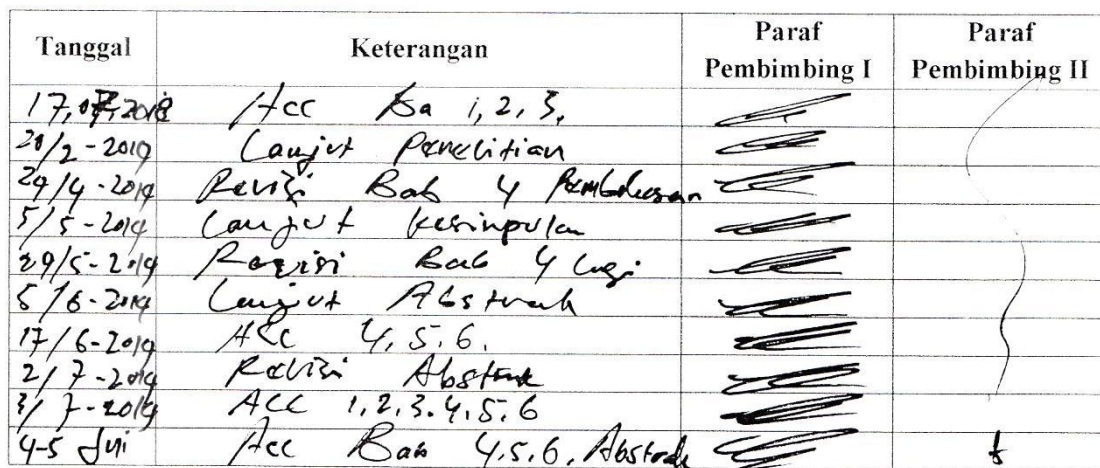 Tanggal Keterangan Paraf Pembimbing I Paraf Pembimbing II
17, 07, 2018 Acc Ba 1, 2, 3,
28/2 - 2019 Lanjut Penelitian
29/4 - 2019 Revisi Bab 4 Pembahasan
5/5 - 2019 Lanjut Kesimpulan
29/5 - 2019 Revisi Bab 4 Lagi
5/6 - 2019 Lanjut Abstrak
17/6 - 2019 ACC 4, 5. 6.
2/7 - 2019 Revisi Abstrak
3/7 - 2019 ACC 1, 2, 3. 4, 5. 6
4-5 Juli Acc Bab 4.5.6, Abstrak